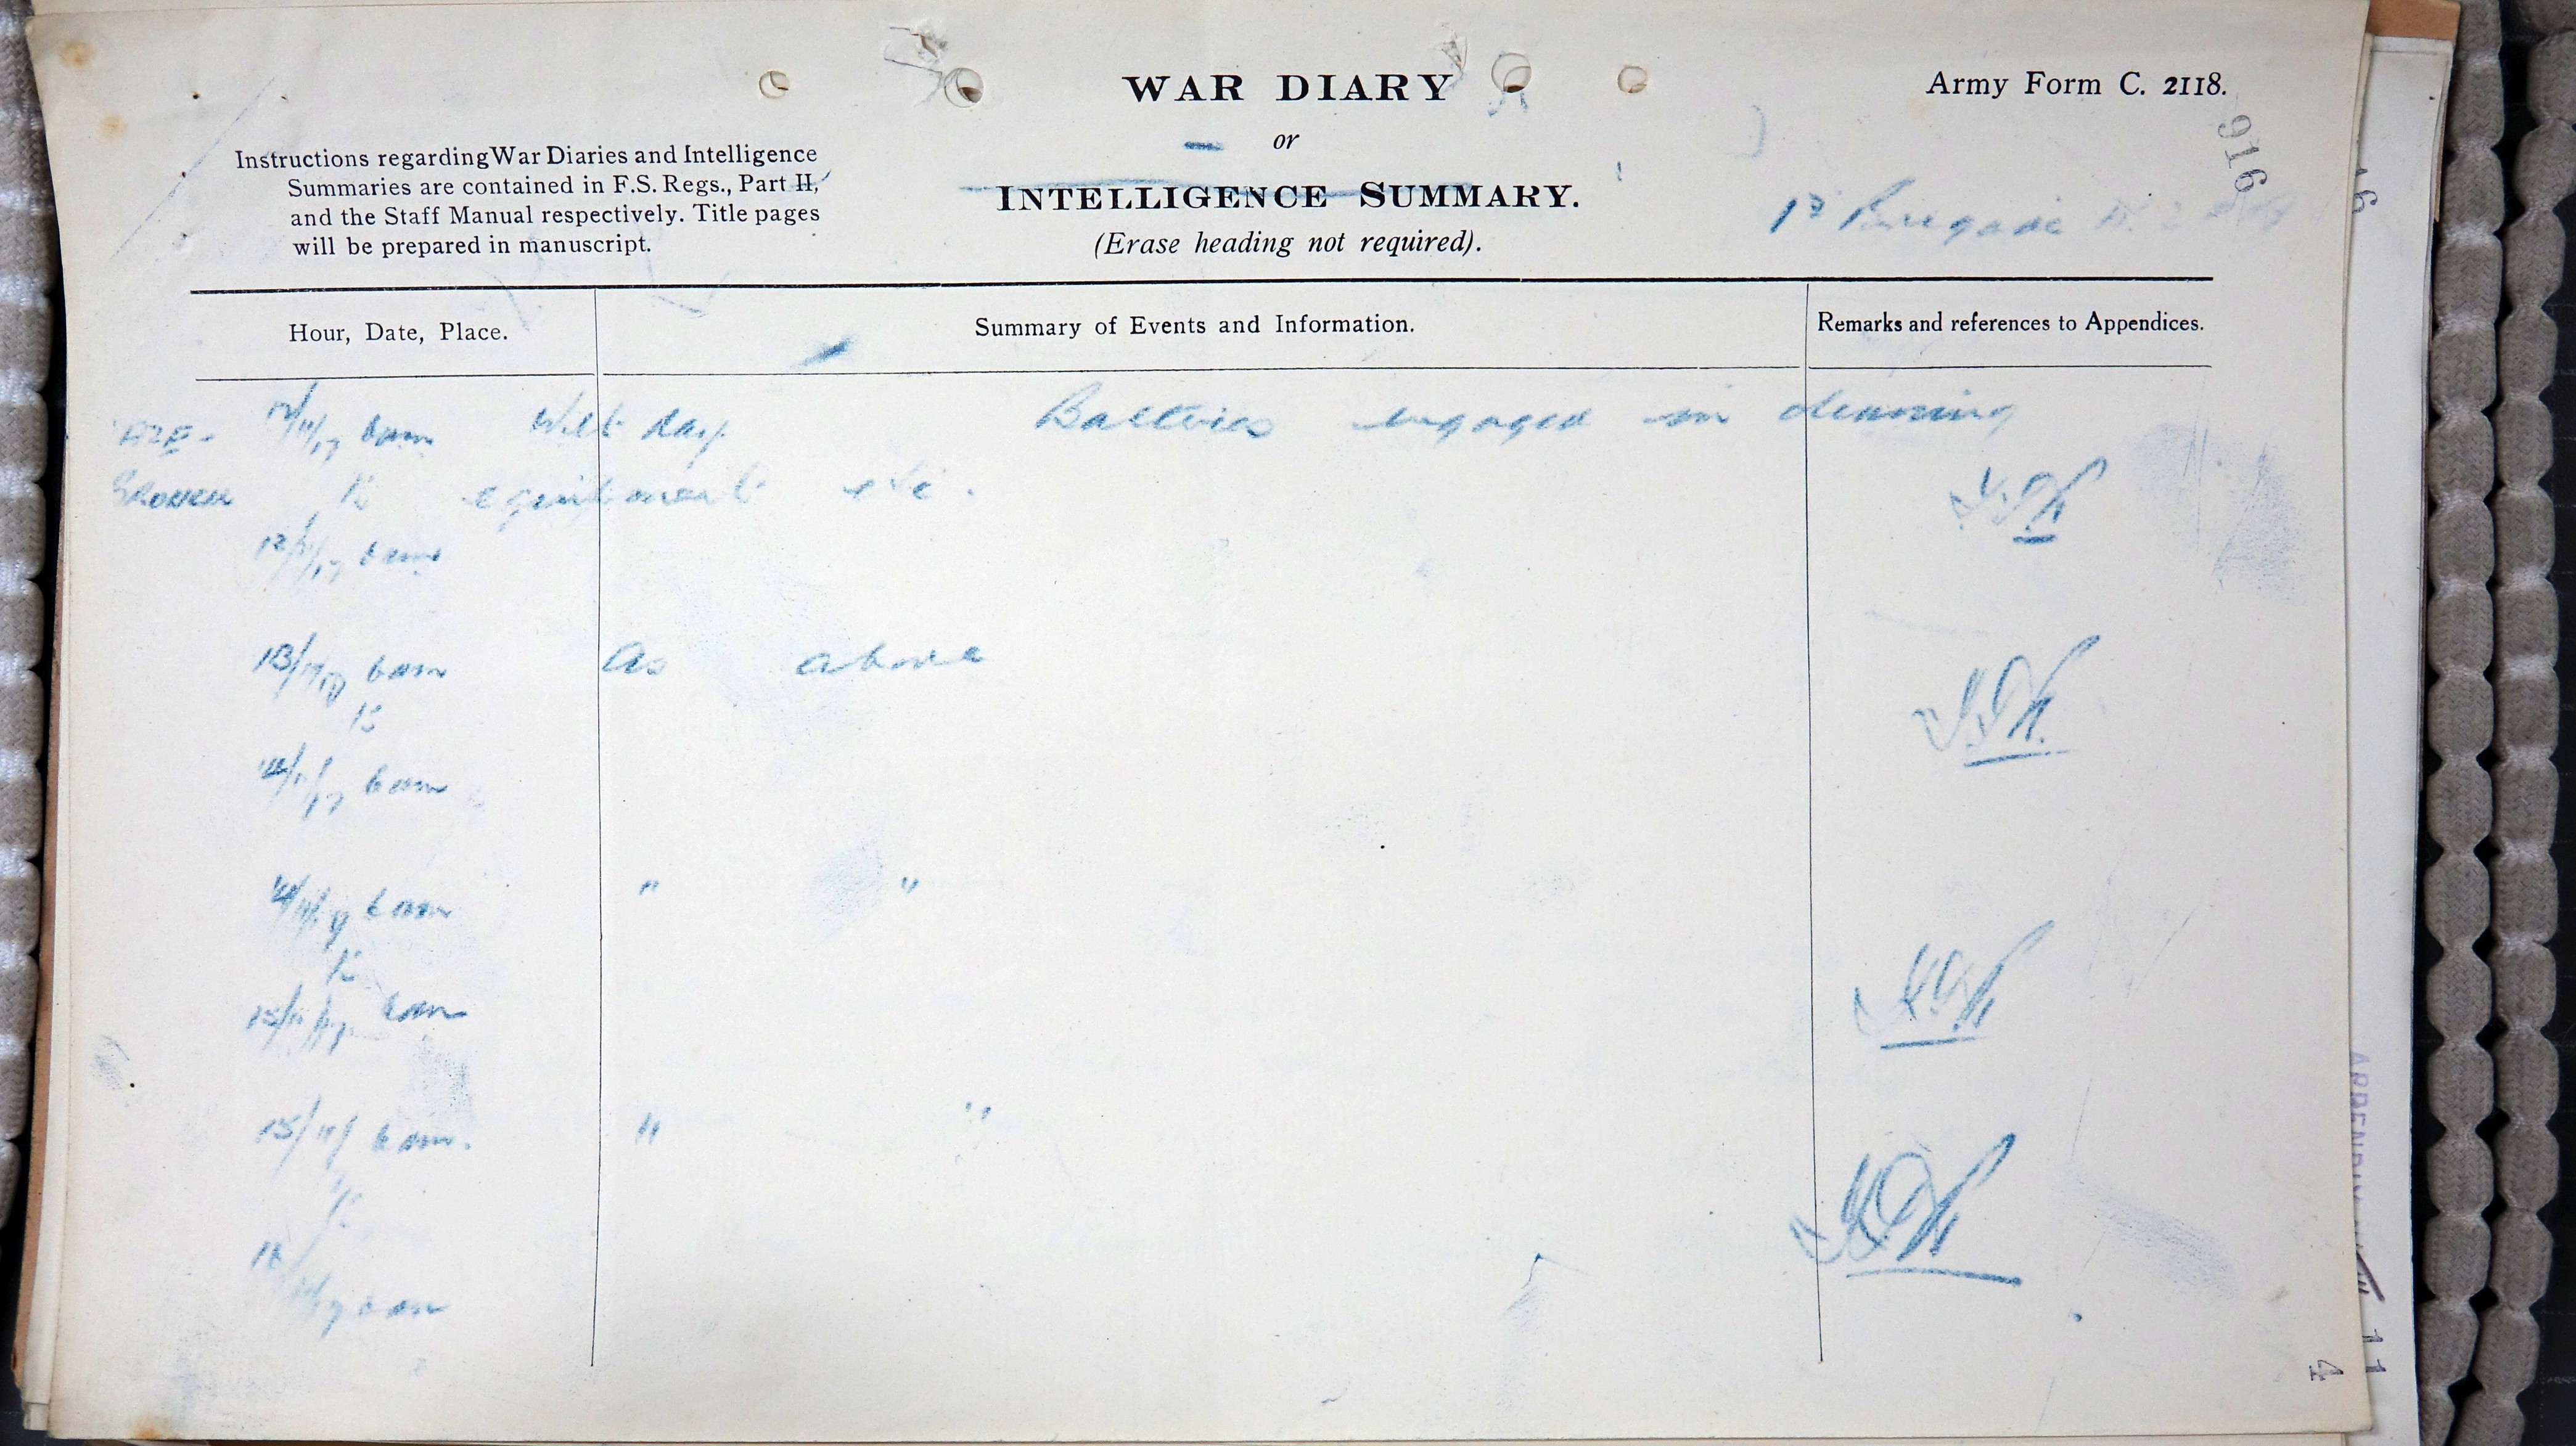 WAR DIARY
or
INTELLIGENCE SUMMARY.
(Erase heading not required).
Army Form C. 2118.
916
Instructions regarding War Diaries and Intelligence
Summaries are contained in F.S. Regs., Part II,
and the Staff Manual respectively. Title pages
will be prepared in manuscript.
1st Brigade
Hour, Date, Place.
Summary of Events and Information.
Remarks and references to Appendices.
/11/17 6am Wet day. Batteries engaged in cleaning
to equipment etc.
12/11/17 6am
13/11/17 6am As above
to
14/11/17 6am
14/11/17 6am " "
to
15/11/17 6am
15/11/ 6am. " "
to
16/11/17 6am
4
11